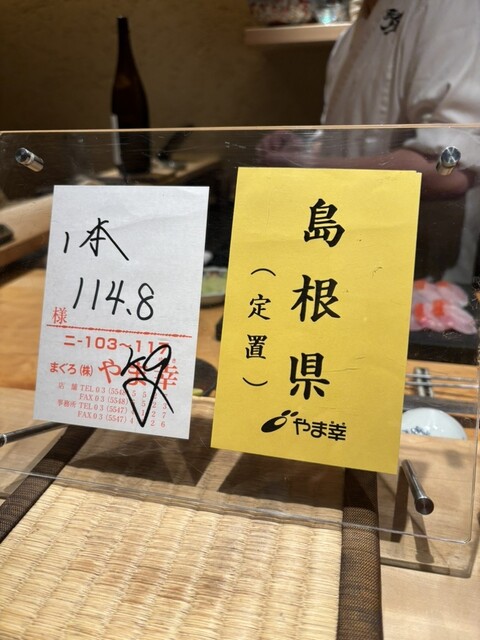 1本
114.8
様
ニ-103〜11
まぐろ(株)やま幸
店舗 TEL 03 (5548)
FAX 03 (5548)
事務所 TEL 03 (5547)
FAX 03 (5547)
島根県
(定置)
やま幸